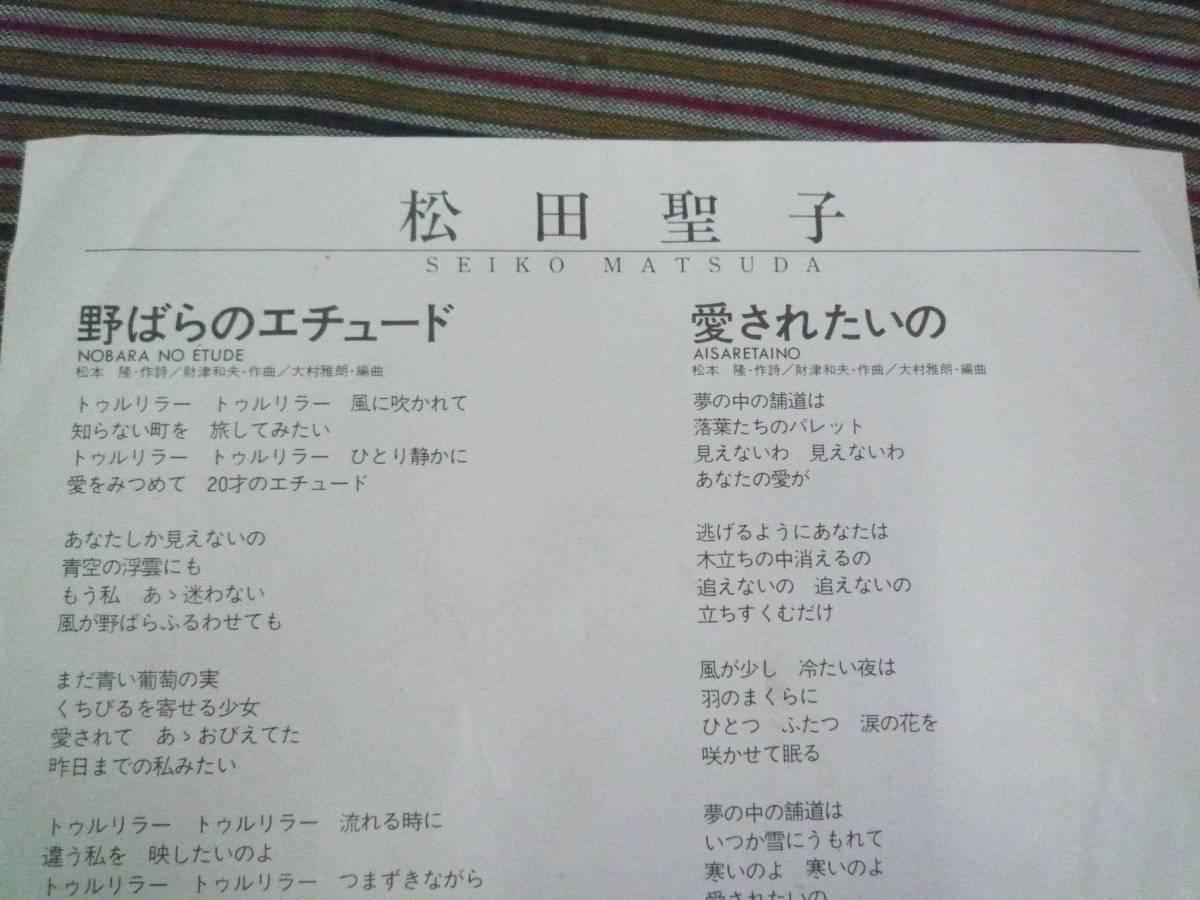 松田聖子
SEIKO MATSUDA
野ばらのエチュード
NOBARA NO ÉTUDE
松本 隆・作詩／財津和夫・作曲／大村雅朗・編曲
トゥルリラー トゥルリラー 風に吹かれて
知らない町を 旅してみたい
トゥルリラー トゥルリラー ひとり静かに
愛をみつめて 20才のエチュード
あなたしか見えないの
青空の浮雲にも
もう私 あゝ迷わない
風が野ばらふるわせても
まだ青い葡萄の実
くちびるを寄せる少女
愛されて あゝおびえてた
昨日までの私みたい
トゥルリラー トゥルリラー 流れる時に
違う私を 映したいのよ
トゥルリラー トゥルリラー つまずきながら
愛されたいの
AISARETAINO
松本 隆・作詩／財津和夫・作曲／大村雅朗・編曲
夢の中の舗道は
落葉たちのパレット
見えないわ 見えないわ
あなたの愛が
逃げるようにあなたは
木立ちの中消えるの
追えないの 追えないの
立ちすくむだけ
風が少し 冷たい夜は
羽のまくらに
ひとつ ふたつ 涙の花を
咲かせて眠る
夢の中の舗道は
いつか雪にうもれて
寒いのよ 寒いのよ
愛されたいの